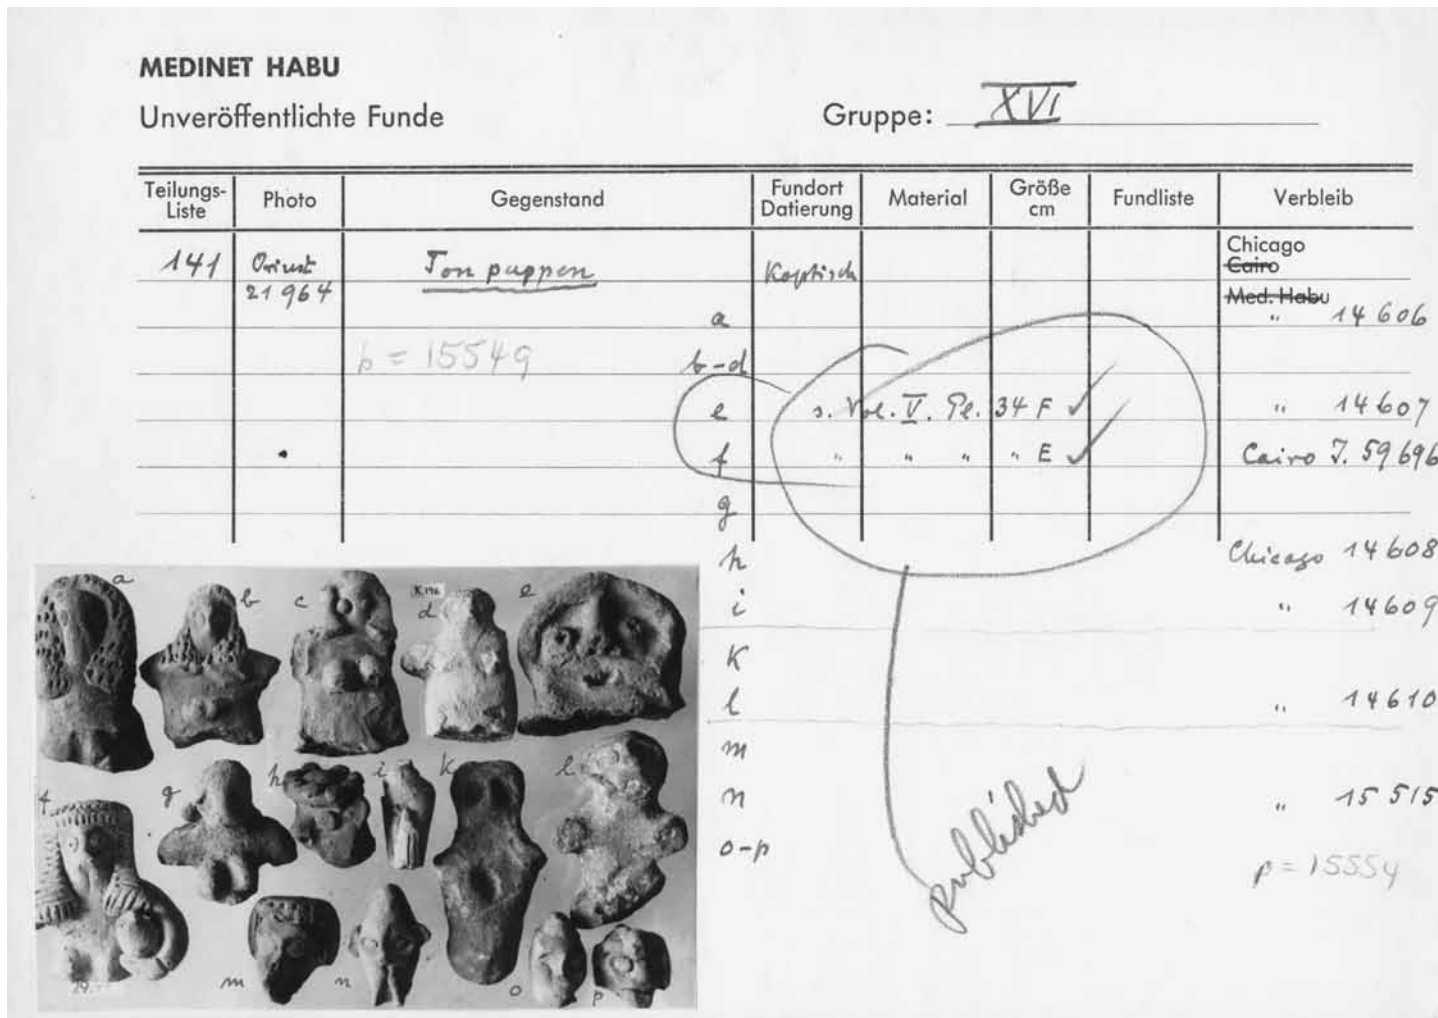 MEDINET HABU
Unveröffentlichte Funde
Gruppe: XVI
Teilungs-Liste Photo Gegenstand Fundort Datierung Material Größe cm Fundliste Verbleib
141 Orinst 21964 Tonpuppen Koptisch Chicago
Cairo
Med. Habu
a " 14606
b = 15549
b-d
e s. Vol. V. Pl. 34 F ✓ " 14607
f " " " " E ✓ Cairo J. 59696
g
h Chicago 14608
i " 14609
K
l " 14610
m
n " 15515
o-p
p = 15554
published
a b c K196 d e
f g h i k l
m n o p